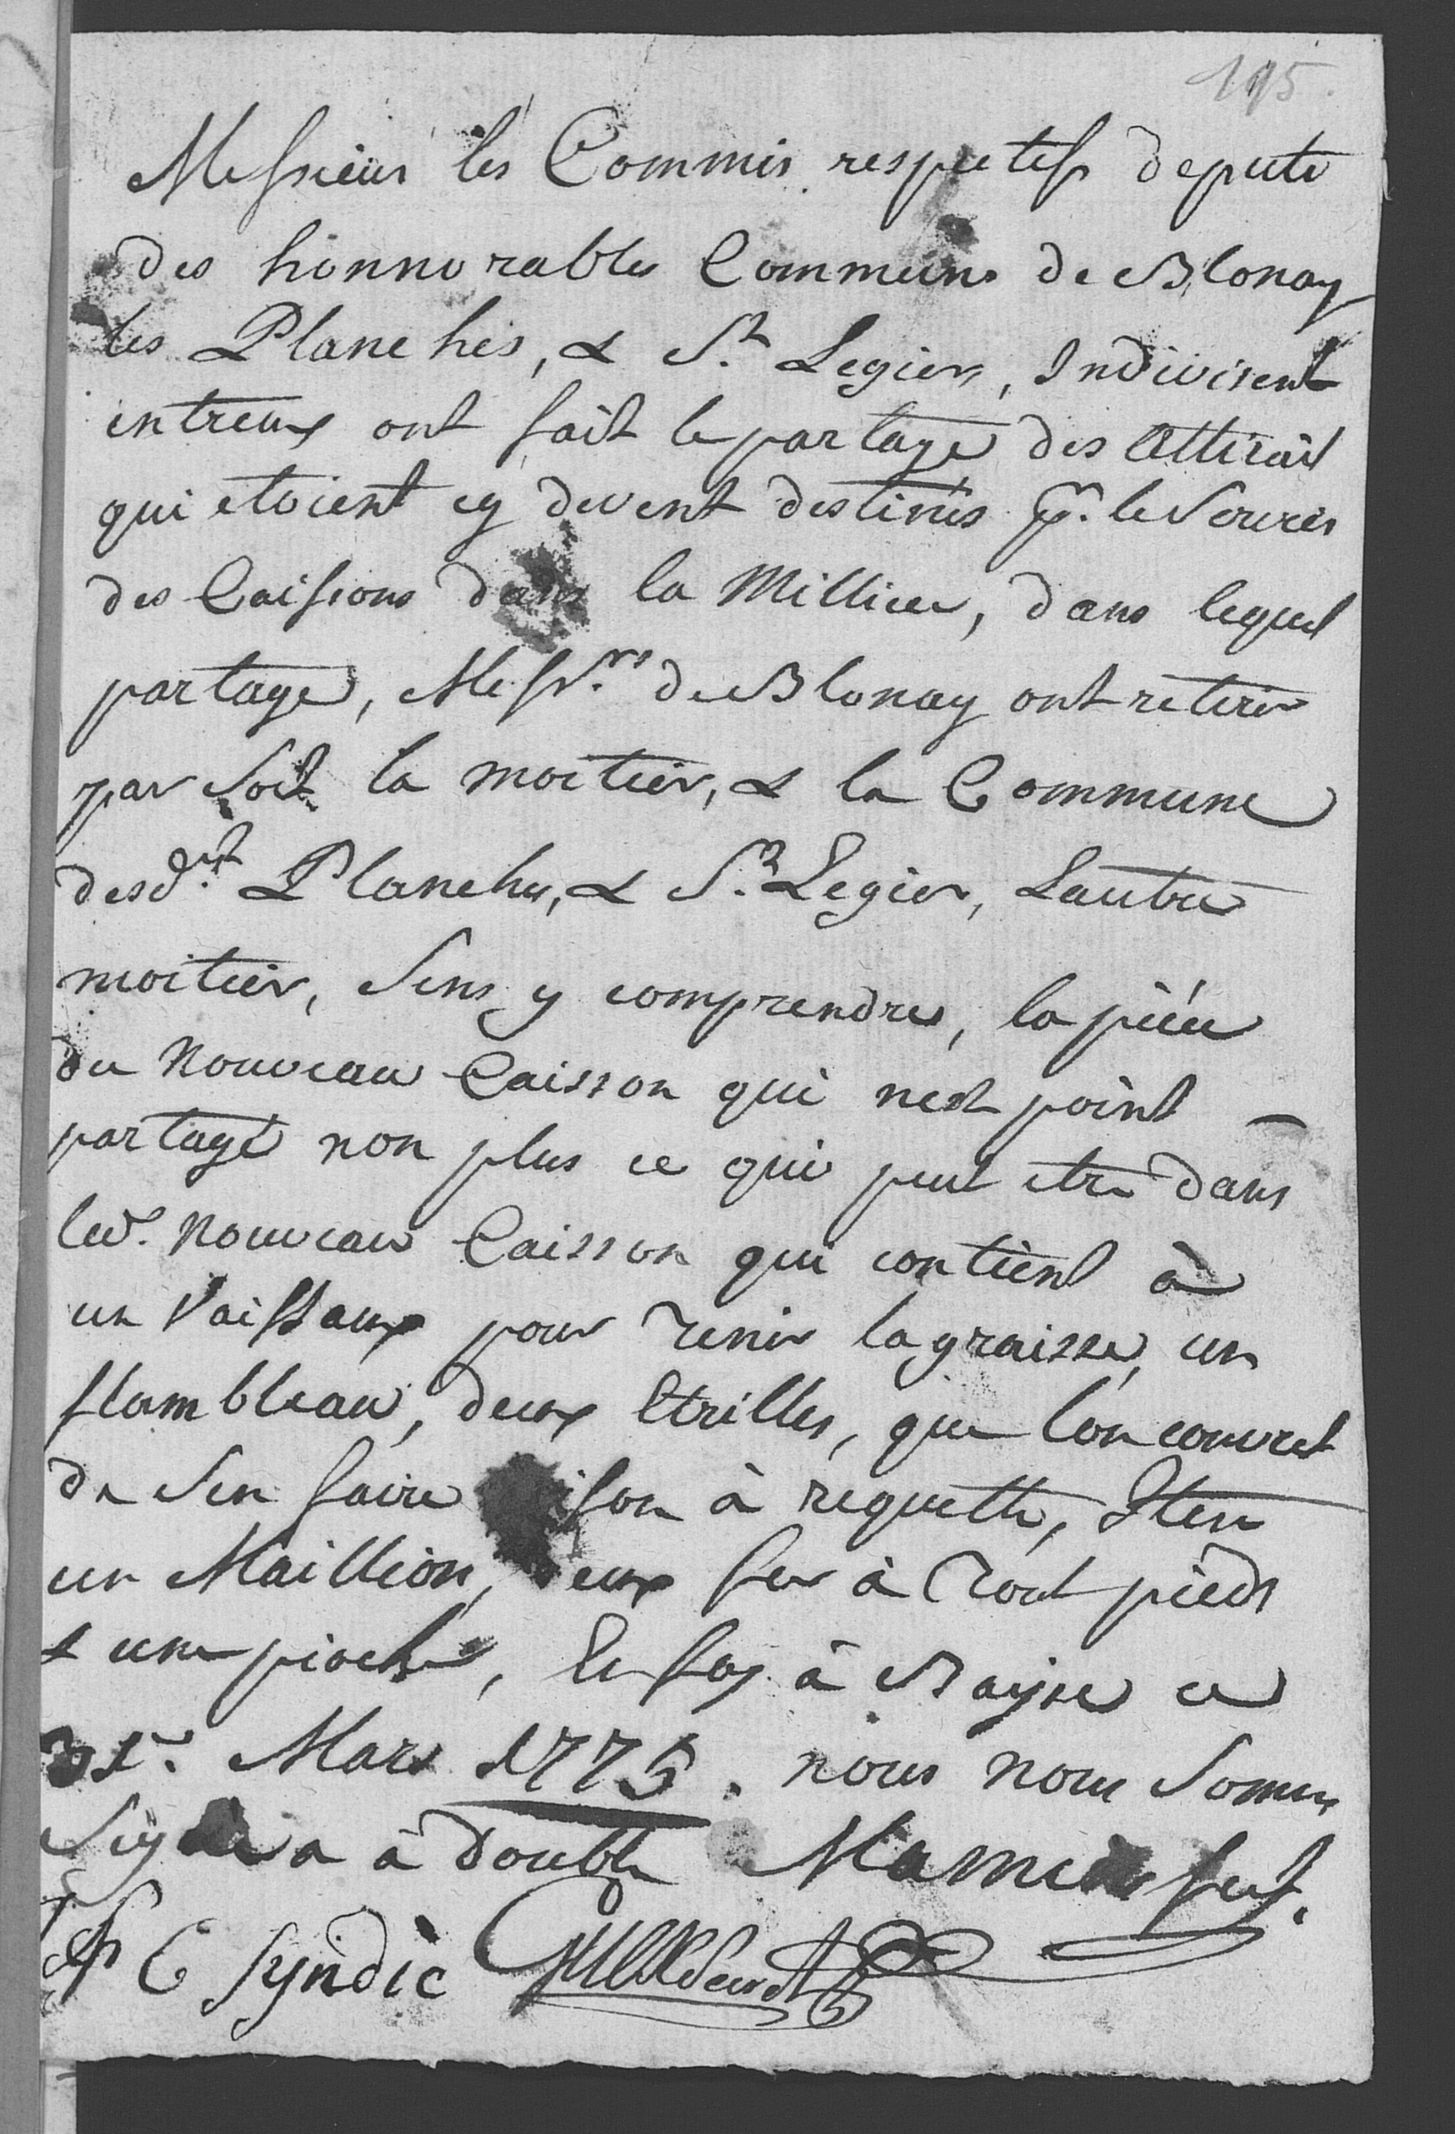 195.
Messieurs les Commis respectifs deputé
des honnorables Commune de Blonay
les Planches, & St. Legier, Indivisent
entreux ont fait le partage des Attirail
qui etoient cy devent destinés pr. le Service
des Caissons dans la Millice, dans lequel
partage, Messrs. de Blonay ont retirer
par Soit la moitier, & la Commune
desdt. Planches, & St. Legier, Lautre
moitier, Sens y comprendre, la piéce
du Nouveau Caisson qui nest point
partagé non plus ce qui peut etre dans
led. Nouveau Caisson qui contient à
un Vaissaux pour Tenir la graisse, un
flambleau, deux Etrilles, que l'on
de Sen faire à requette, Item
un Maillion, deux fer à Tout pieds
& une pioche, En foy à Bayse ce
31e. Mars 1775. nous nous Somes
Signé à double Mamin
C Syndic